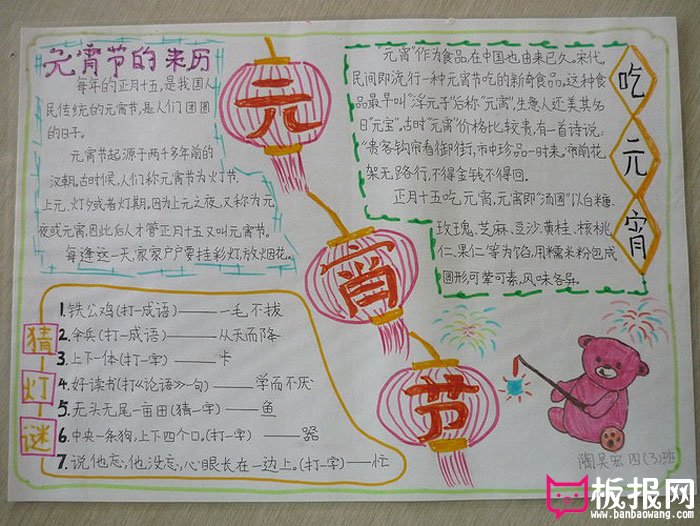 元宵节的来历
每年的正月十五,是我国人
民传统的元宵节,是人们团圆
的日子。
元宵节起源于两千多年前的
汉朝,古时候,人们称元宵节为灯节,
上元,灯夕或者灯期。因为上元之夜,又称为元
夜或元宵,因此后人才管正月十五又叫元宵节。
每逢这一天,家家户户要挂彩灯,放烟花。
元
宵
节
"元宵"作为食品,在中国也由来已久。宋代,
民间即流行一种元宵节吃的新奇食品。这种食
品,最早叫"浮元子"后称"元宵",生意人还美其名
曰"元宝"。古时"元宵"价格比较贵,有一首诗说:
"贵客钩帘看御街,市中珍品一时来。帘前花
架无路行,不得金钱不得回。
正月十五吃元宵,元宵即"汤圆"以白糖、
玫瑰、芝麻、豆沙、黄桂、核桃
仁、果仁等为馅,用糯米粉包成
圆形,可荤可素,风味各异。
吃
元
宵
猜
灯
谜
1.铁公鸡(打一成语)——一毛不拔
2.伞兵(打一成语)——从天而降
3.上下一体(打一字)——卡
4.好读书(打《论语》一句)——学而不厌
5.无头无尾一亩田(猜一字)——鱼
6.中央一条狗,上下四个口。(打一字)——器
7.说他忘,他没忘,心眼长在一边上。(打一字)——忙
四(3)班
板报网
www.banbaowang.com